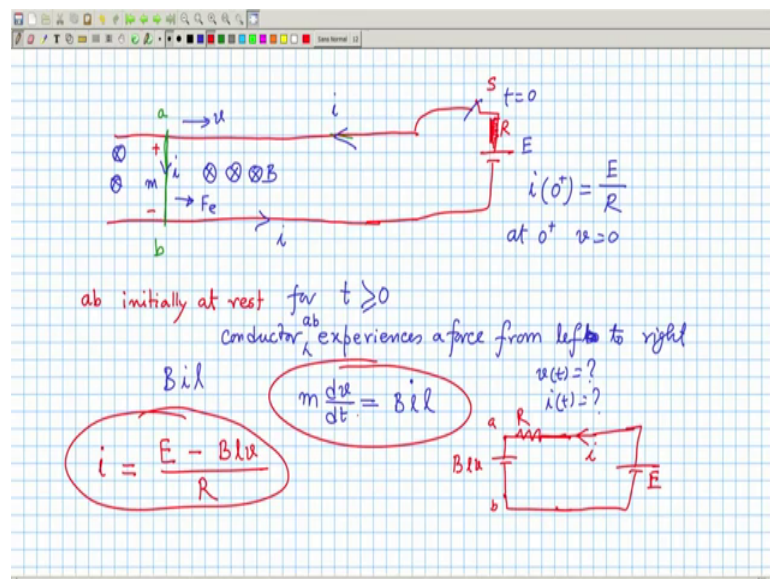 Sans Normal 12
S
t=0
a
→ v
i
R
+
E
i
⊗ ⊗ ⊗ B
m
→ Fe
i(0⁺) = E/R
-
b
i
at 0⁺ v=0
ab initially at rest for t ≥ 0
conductor ab experiences a force from left to right
Bil
m dv/dt = Bil
v(t) = ?
i(t) = ?
i = (E - Blv)/R
a
R
i
Blv
E
b